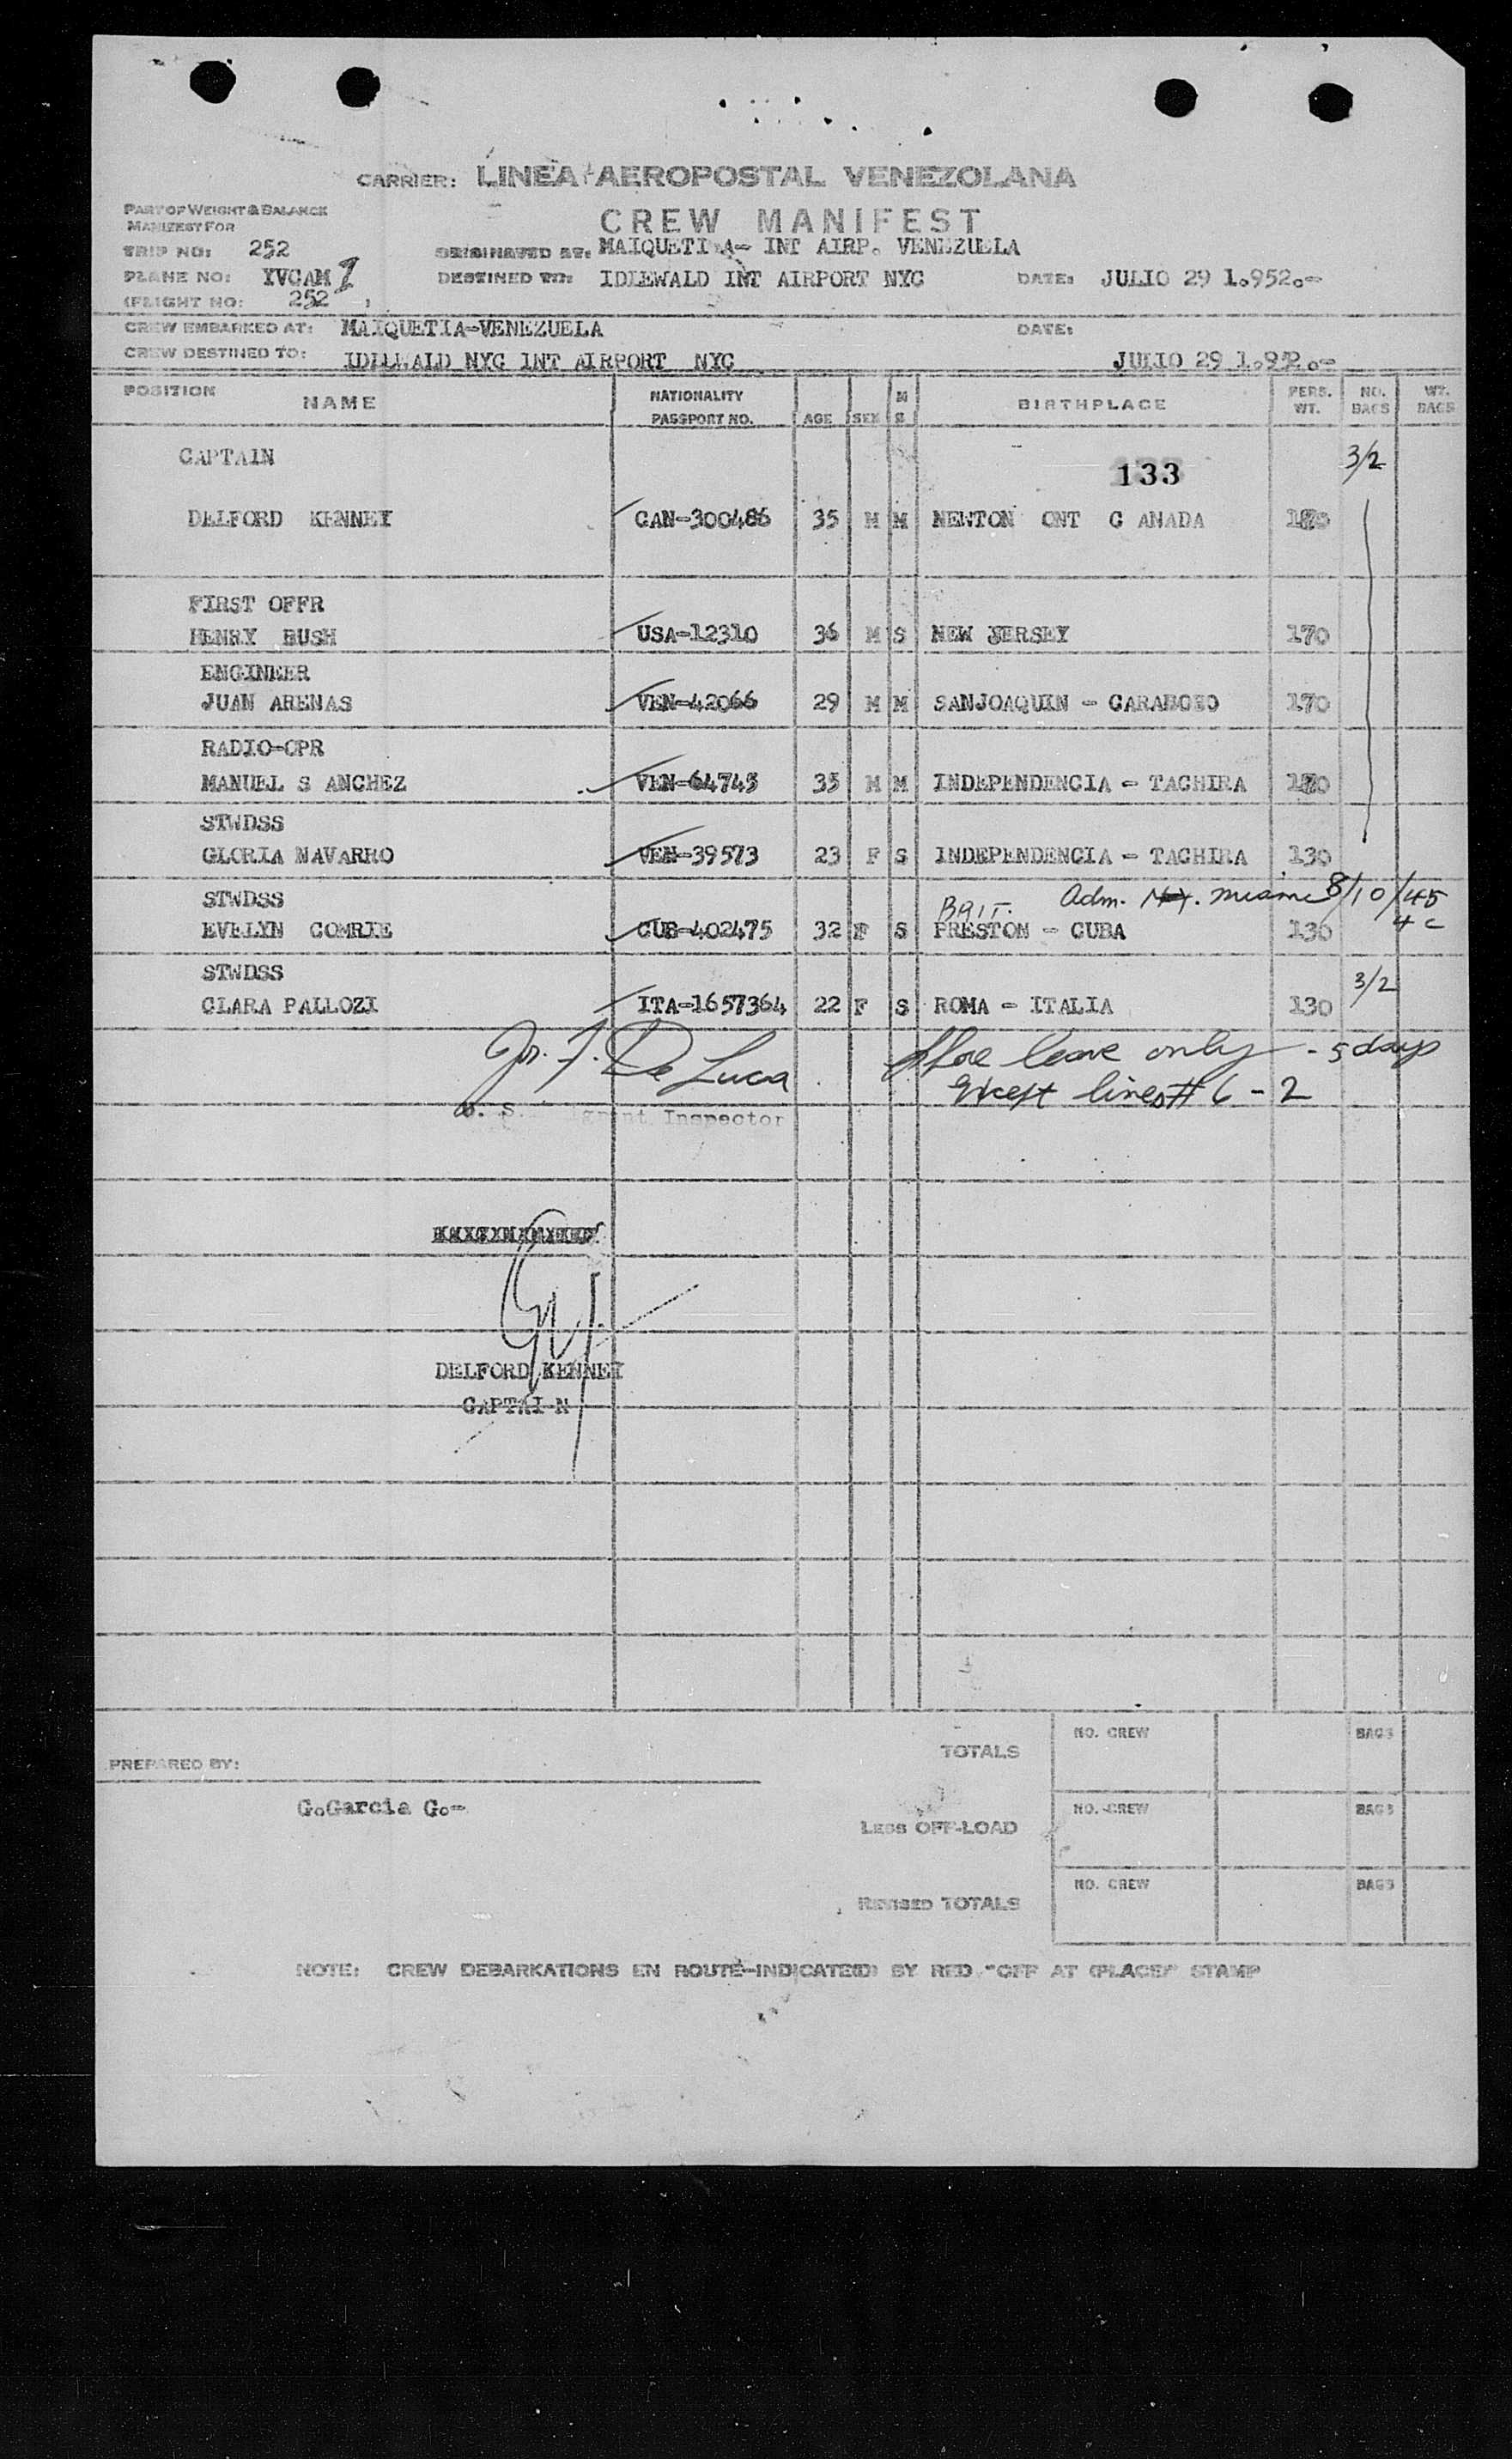 CARRIER: LINEA AEROPOSTAL VENEZOLANA
PART OF WEIGHT & BALANCE
MANIFEST FOR
CREW MANIFEST
TRIP NO: 252 ORIGINATED AT: MAIQUETI A- INT AIRP. VENEZUELA
PLANE NO: YVCAM DESTINED TO: IDLEWALD INT AIRPORT NYC DATE: JULIO 29 1.952.-
(FLIGHT NO: 252 )
CREW EMBARKED AT: MAIQUETIA-VENEZUELA DATE:
CREW DESTINED TO: IDLEWALD NYC INT AIRPORT NYC JULIO 29 1.952.-
POSITION NAME NATIONALITY PASSPORT NO. AGE SEX M S BIRTHPLACE PERS. WT. NO. BAGS WT. BAGS
CAPTAIN 133 3/2
DELFORD KENNEY CAN-300486 35 M M NEWTON ONT C ANADA
FIRST OFFR
HENRY BUSH USA-12310 36 M S NEW JERSEY 170
ENGINEER
JUAN ARENAS VEN-42066 29 M M SANJOAQUIN - CARABOBO 170
RADIO-OPR
MANUEL S ANCHEZ VEN-64745 35 M M INDEPENDENCIA - TACHIRA
STWDSS
GLORIA NAVARRO VEN-39573 23 F S INDEPENDENCIA - TACHIRA 130
STWDSS Adm. Miami 8/10/45
EVELYN COMRIE CUB-402475 32 F S PRESTON - CUBA 130 4 c
STWDSS 3/2
CLARA PALLOZI ITA-1657364 22 F S ROMA - ITALIA 130
De Luca Shore leave only - 5 days
U. S. Immigrant Inspector Except lines # 6 - 2
DELFORD KENNEY
CAPTAI N
PREPARED BY:
G.Garcia G.-
TOTALS NO. CREW BAGS
LESS OFF-LOAD NO. CREW BAGS
REVISED TOTALS NO. CREW BAGS
NOTE: CREW DEBARKATIONS EN ROUTE-INDICATED BY RED "OFF AT (PLACE)" STAMP